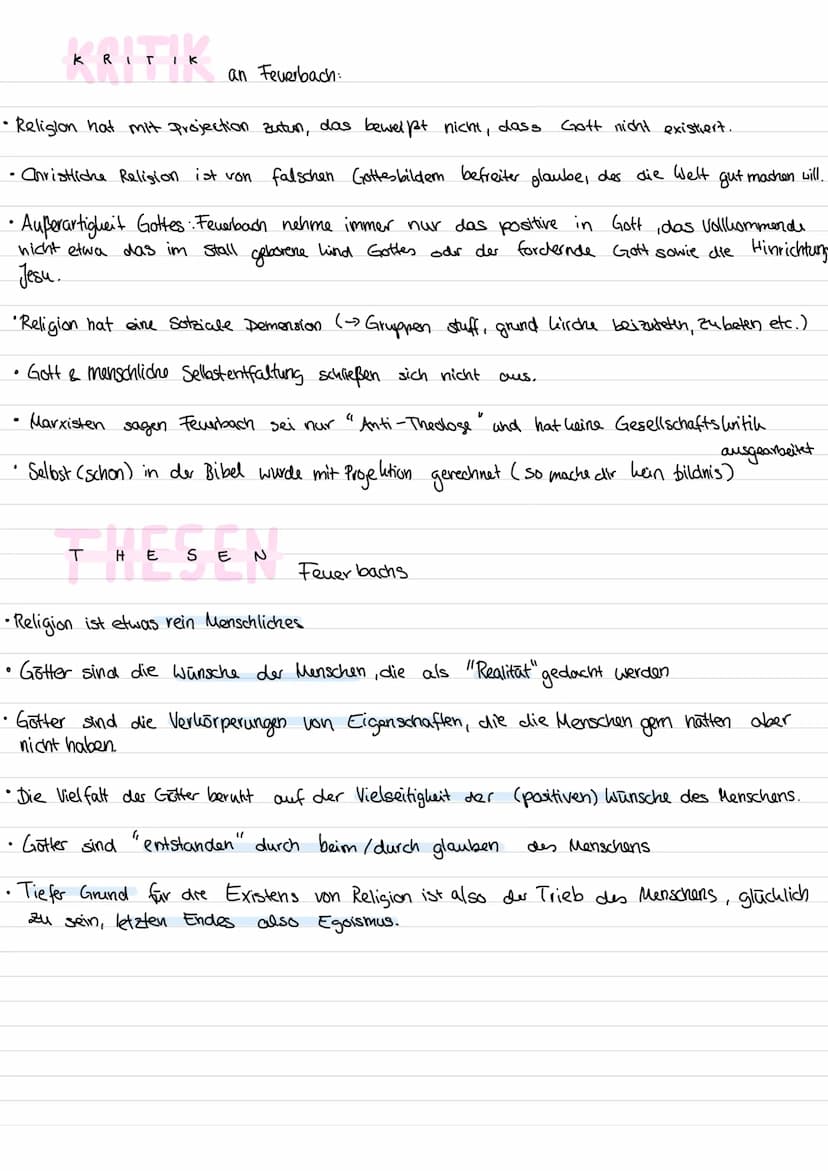 KRITIK an Feuerbach:
• Religion hat mit Projection zutun, das beweißt nicht, dass Gott nicht existiert.
• Christliche Religion ist von falschen Gottesbildern befreiter glaube, des die Welt gut machen will.
• Außerartigkeit Gottes: Feuerbach nehme immer nur das positive in Gott, das Vollkommende
nicht etwa das im Stall geborene Kind Gottes oder der fordernde Gott sowie die Hinrichtung
Jesu.
• Religion hat eine Sotziale Demension (→ Gruppen stuff, grund Kirche beizutreten, zu beten etc.)
• Gott & menschliche Selbstentfaltung schließen sich nicht aus.
• Marxisten sagen Feuerbach sei nur "Anti-Theologe" und hat keine Gesellschaftskritik
ausgearbeitet
• Selbst (schon) in der Bibel wurde mit Projektion gerechnet (so mache dir kein bildnis)
THESEN Feuerbachs
• Religion ist etwas rein Menschliches
• Götter sind die Wünsche der Menschen, die als "Realität" gedacht werden
• Götter sind die Verkörperungen von Eigenschaften, die die Menschen gern hätten aber
nicht haben.
• Die Vielfalt der Götter beruht auf der Vielseitigkeit der (positiven) Wünsche des Menschens.
• Götter sind "entstanden" durch beim/durch glauben des Menschens
• Tiefer Grund für die Existens von Religion ist also der Trieb des Menschens, glücklich
zu sein, letzten Endes also Egoismus.